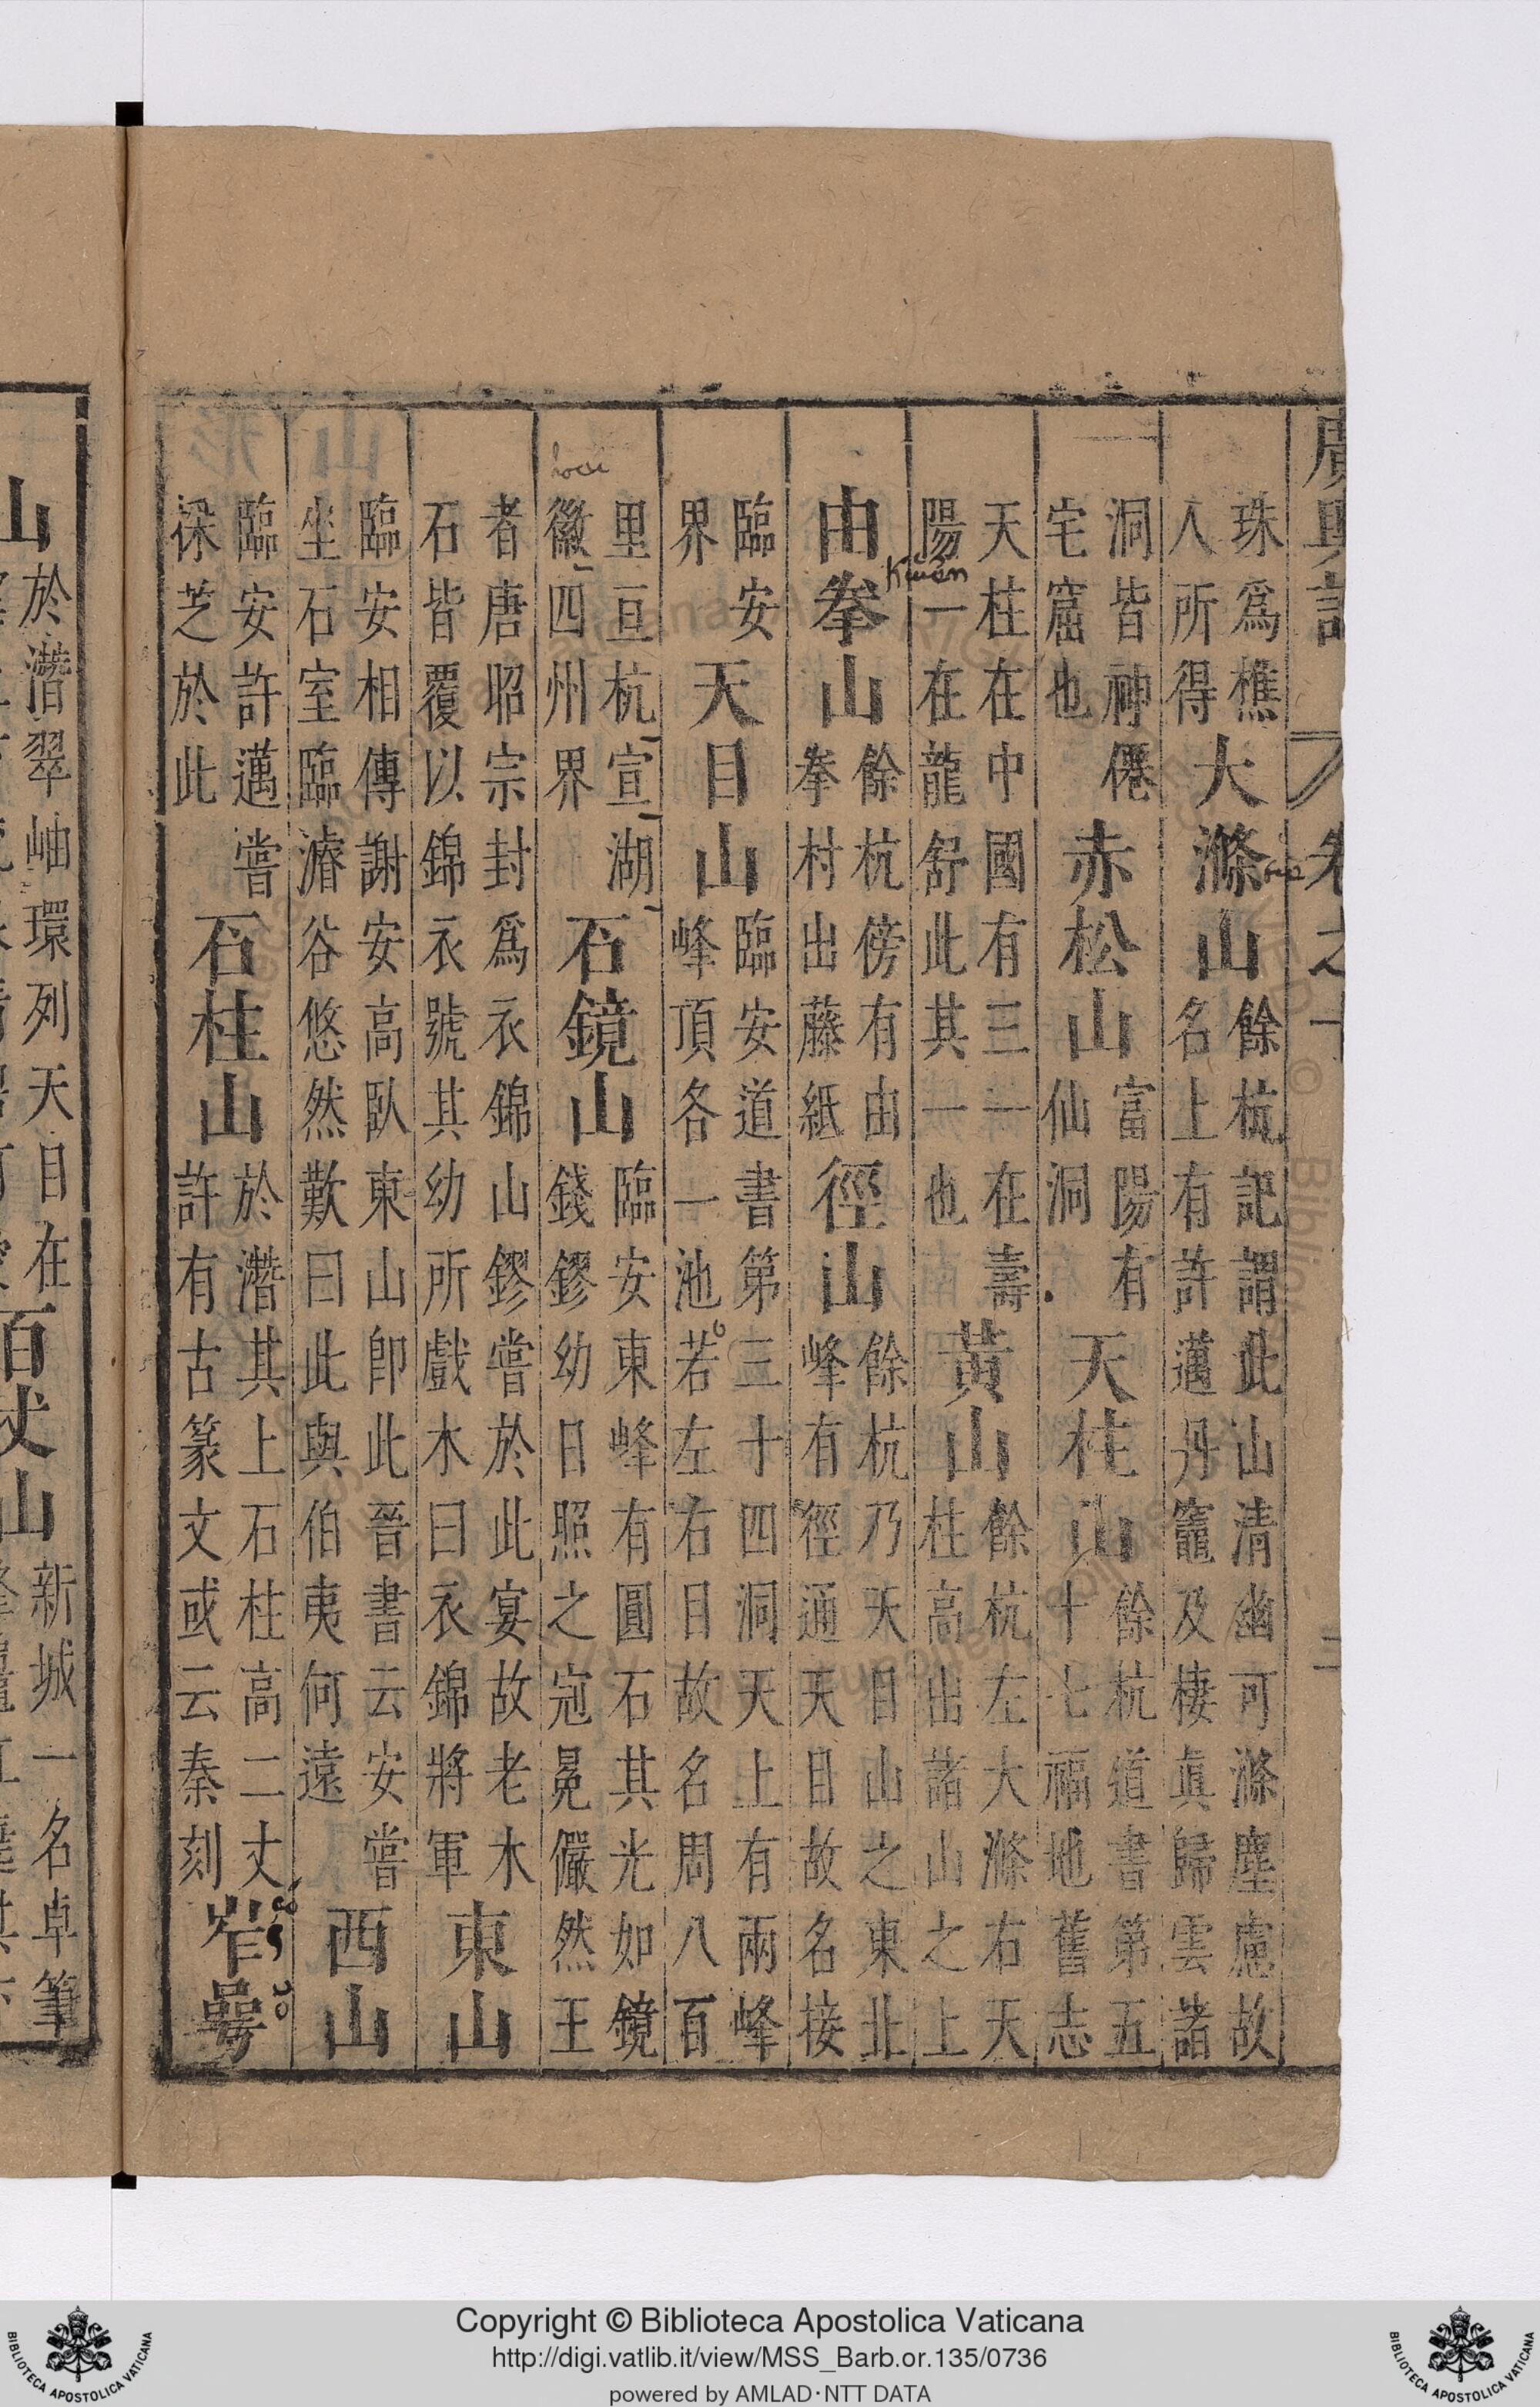 廣輿記 卷之十 二
珠爲樵人所得大滌山餘杭記謂此山清幽可滌塵慮故名上有許邁丹竈及棲眞歸雲諸
洞皆神僊宅窟也赤松山富陽有仙洞天柱山餘杭道書第五十七福地舊志
天柱在中國有三一在壽陽一在龍舒此其一也黃山餘杭左大滌右天柱高出諸山之上
由拳山餘杭傍有由拳村出藤紙徑山餘杭乃天目山之東北峰有徑通天目故名接
Kiuên
臨安界天目山臨安道書第三十四洞天上有兩峰峰頂各一池若左右目故名周八百
里亘杭宣湖徽四州界石鏡山臨安東峰有圓石其光如鏡錢鏐幼日照之冠冕儼然王
hoei
者唐昭宗封爲衣錦山鏐嘗於此宴故老木石皆覆以錦衣號其幼所戲木曰衣錦將軍東山
臨安相傳謝安高臥東山卽此晉書云安嘗坐石室臨濬谷悠然歎曰此與伯夷何遠西山
臨安許邁嘗採芝於此石柱山於潛其上石柱高二丈許有古篆文或云秦刻岝崿
山於潛翠岫環列天目在百丈山新城一名卓筆
Copyright © Biblioteca Apostolica Vaticana
http://digi.vatlib.it/view/MSS_Barb.or.135/0736
powered by AMLAD·NTT DATA
BIBLIOTECA APOSTOLICA VATICANA
BIBLIOTECA APOSTOLICA VATICANA